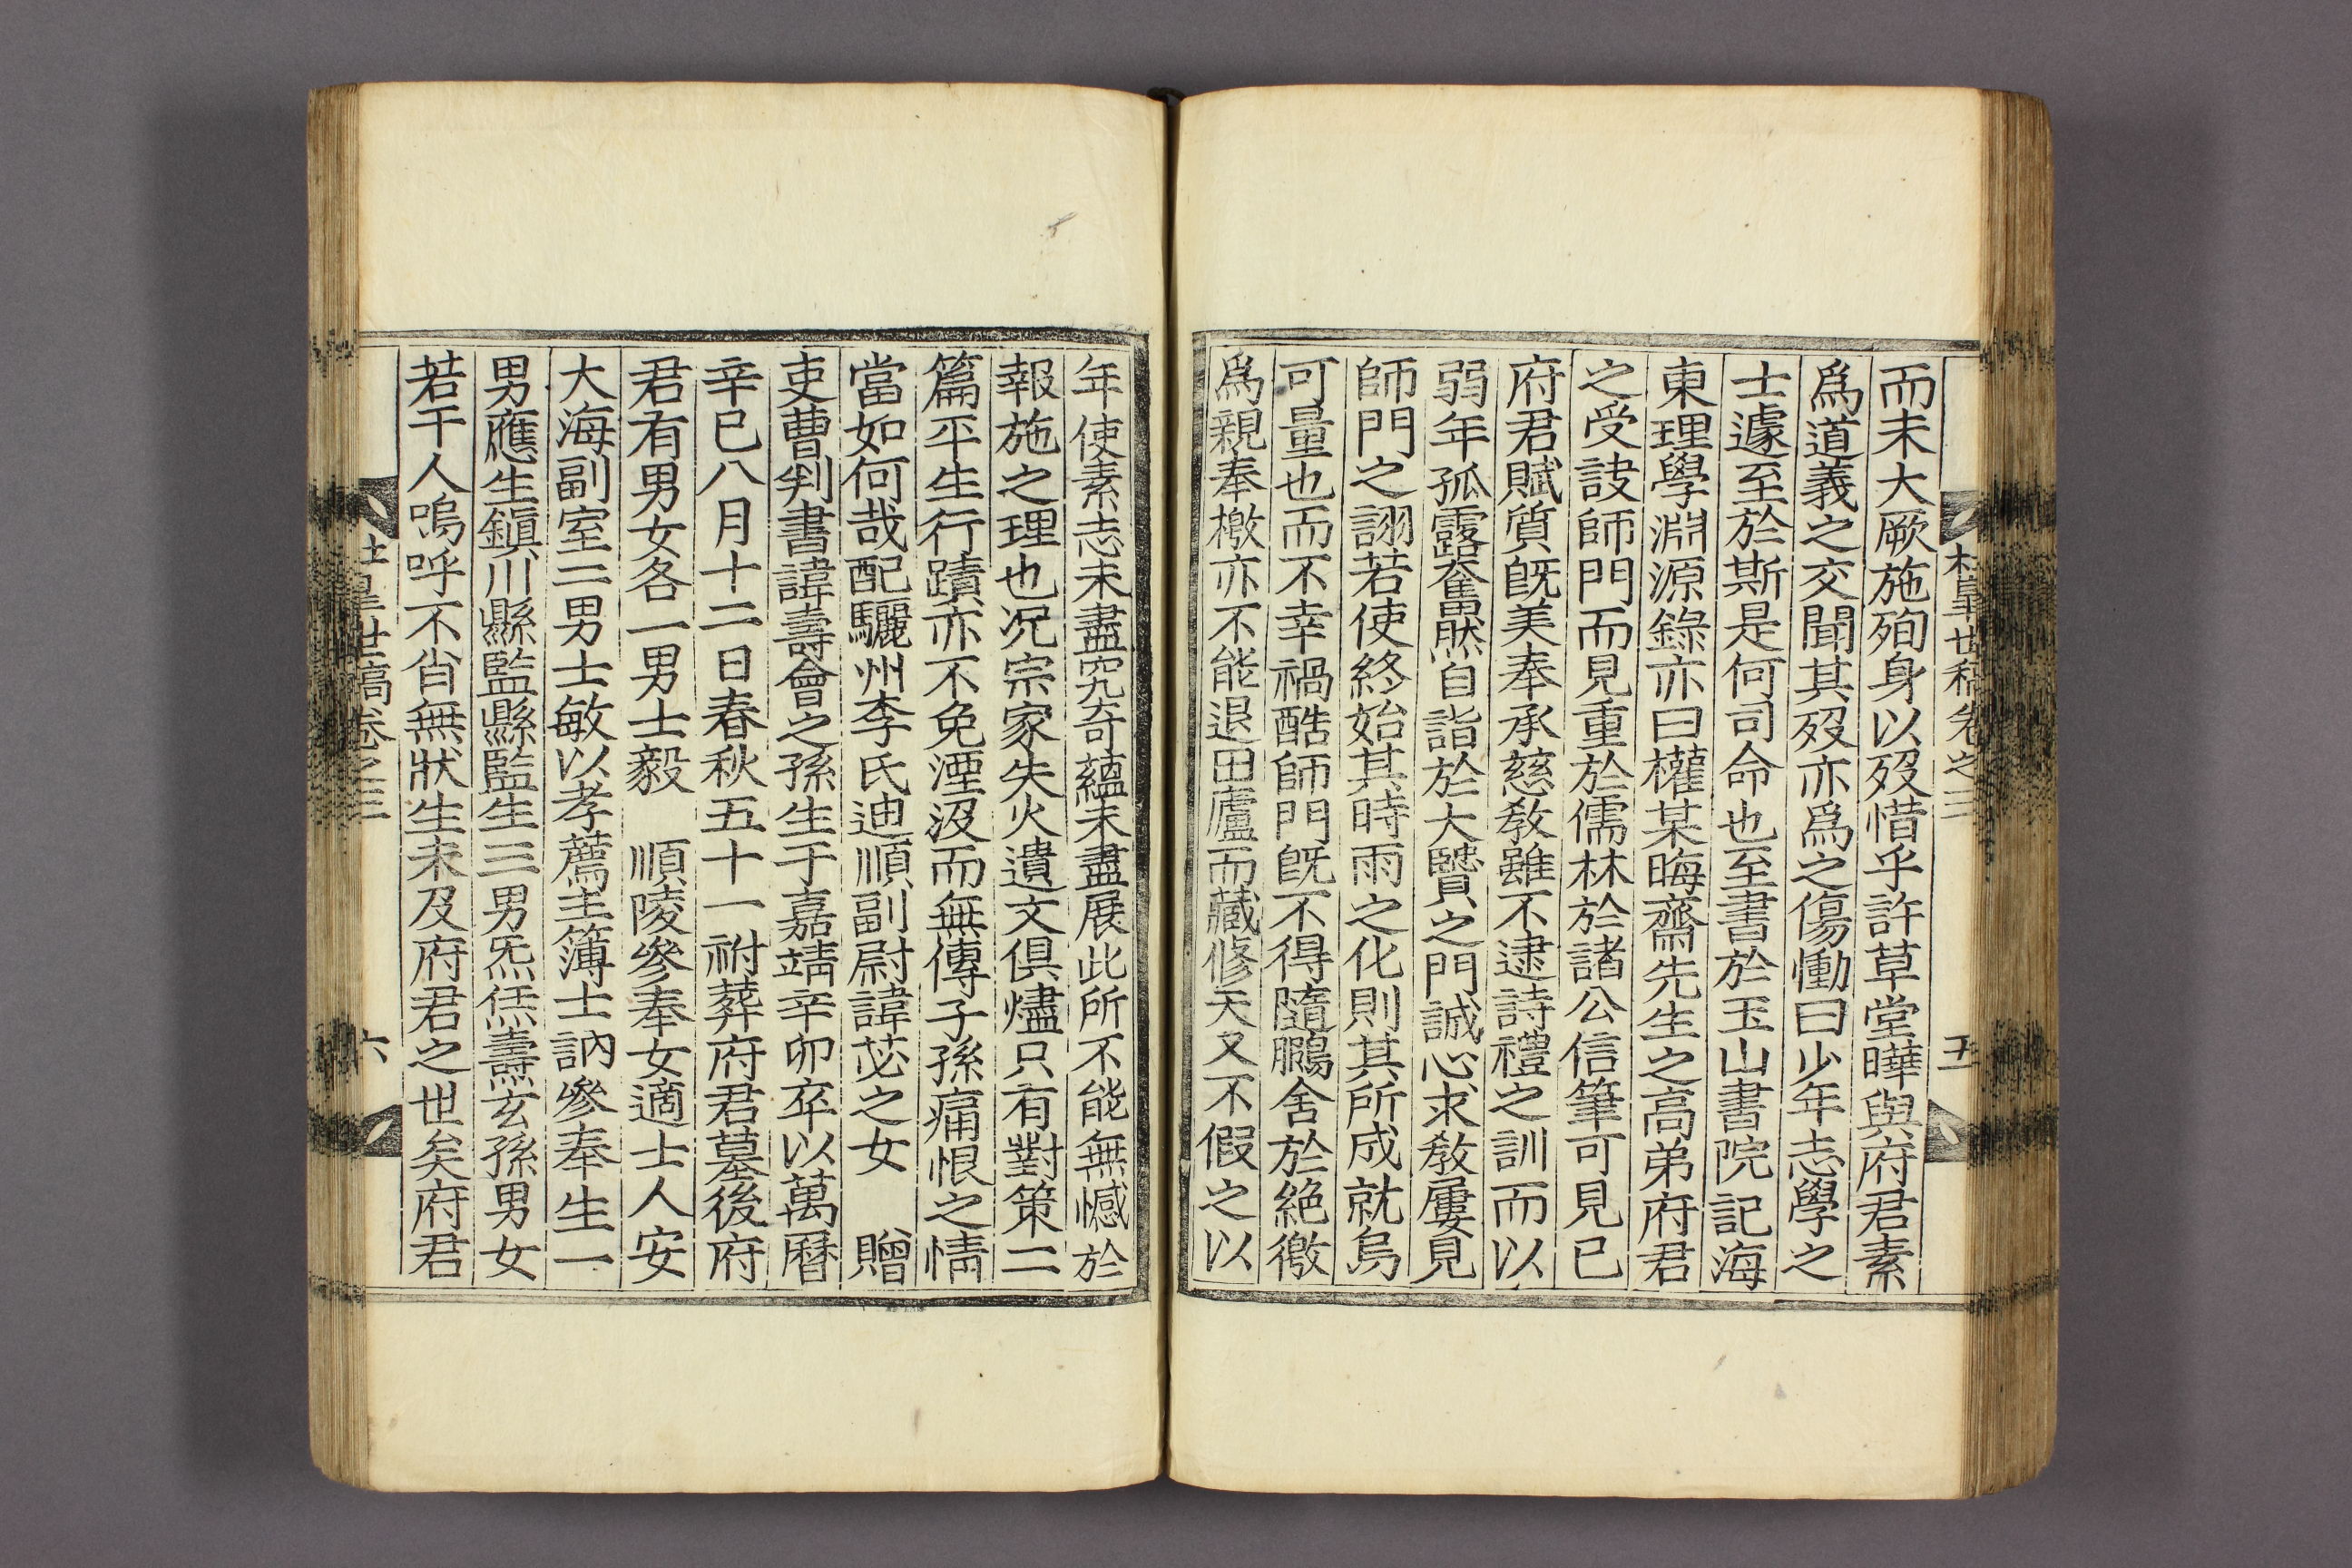 杜臯世稿卷之三 五
而未大厥施殉身以歿惜乎許草堂曄與府君素
爲道義之交聞其歿亦爲之傷慟曰少年志學之
士遽至於斯是何司命也至書於玉山書院記海
東理學淵源錄亦曰權某晦齋先生之高弟府君
之受訣師門而見重於儒林於諸公信筆可見已
府君賦質旣美奉承慈敎雖不逮詩禮之訓而以
弱年孤露奮然自詣於大賢之門誠心求敎屢見
師門之詡若使終始其時雨之化則其所成就烏
可量也而不幸禍酷師門旣不得隨鵩舍於絶徼
爲親奉檄亦不能退田廬而藏修天又不假之以
年使素志未盡究奇蘊未盡展此所不能無憾於
報施之理也况宗家失火遺文俱燼只有對策二
篇平生行蹟亦不免湮沒而無傳子孫痛恨之情
當如何哉配驪州李氏迪順副尉諱苾之女 贈
吏曹判書諱壽會之孫生于嘉靖辛卯卒以萬曆
辛巳八月十二日春秋五十一祔葬府君墓後府
君有男女各一男士毅 順陵參奉女適士人安
大海副室二男士敏以孝薦主簿士訥參奉生一
男應生鎭川縣監縣監生三男炁㷗燾玄孫男女
若干人嗚呼不肖無狀生未及府君之世矣府君
杜臯世稿卷之三 六